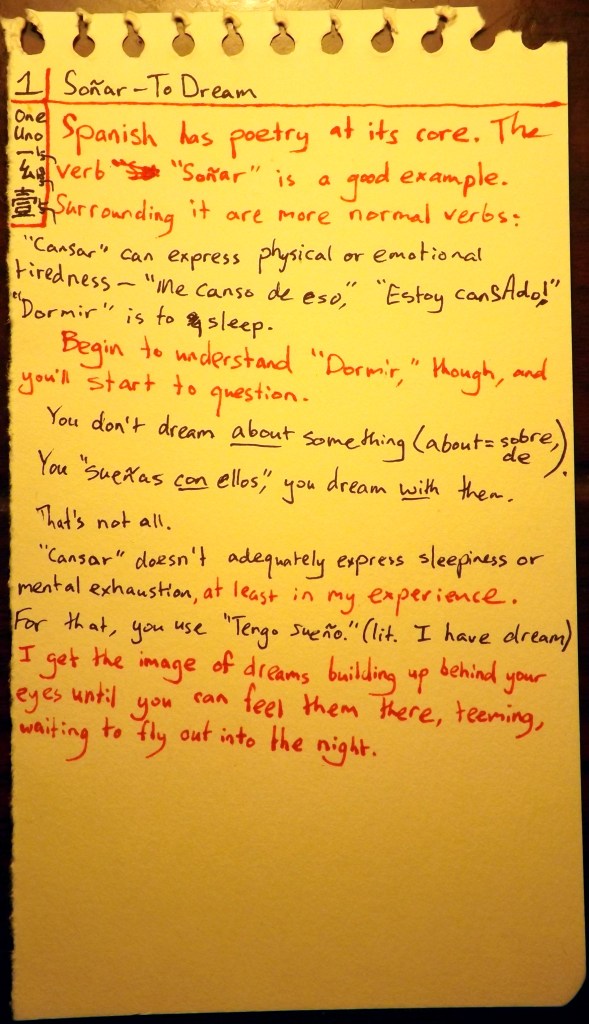 1 Soñar - To Dream
One
Uno
一
幺
壹
Spanish has poetry at its core. The
verb "Soñar" is a good example.
Surrounding it are more normal verbs:
"Cansar" can express physical or emotional
tiredness - "Me canso de eso," "Estoy canSAdo!"
"Dormir" is to sleep.
Begin to understand "Dormir," though, and
you'll start to question.
You don't dream about something (about = sobre, de).
You "sueñas con ellos," you dream with them.
That's not all.
"Cansar" doesn't adequately express sleepiness or
mental exhaustion, at least in my experience.
For that, you use "Tengo sueño." (lit. I have dream)
I get the image of dreams building up behind your
eyes until you can feel them there, teeming,
waiting to fly out into the night.